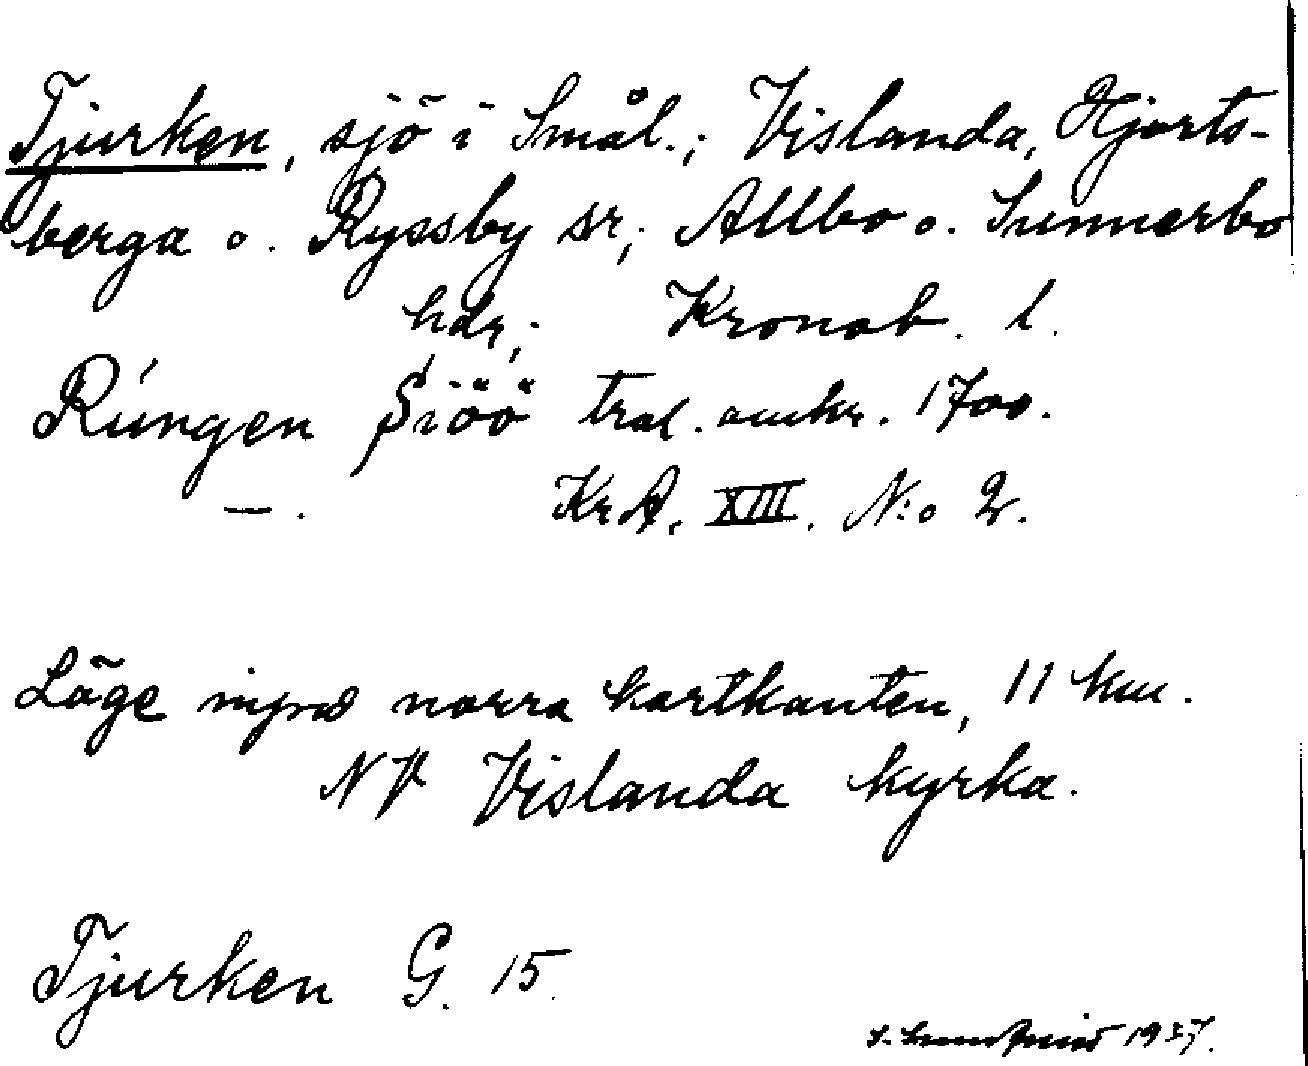 Tjurken, sjö i Smål.; Vislanda, Hjorts-
berga o. Ryssby sr; Allbo o. Sunnerbo
hdr; Kronob. l.
Rúngen Siöö trol. omkr. 1700.
— . KrA. XIII. N:o 2.
Läge invid norra kartkanten, 11 km.
NV Vislanda kyrka.
Tjurken G. 15.
1937.